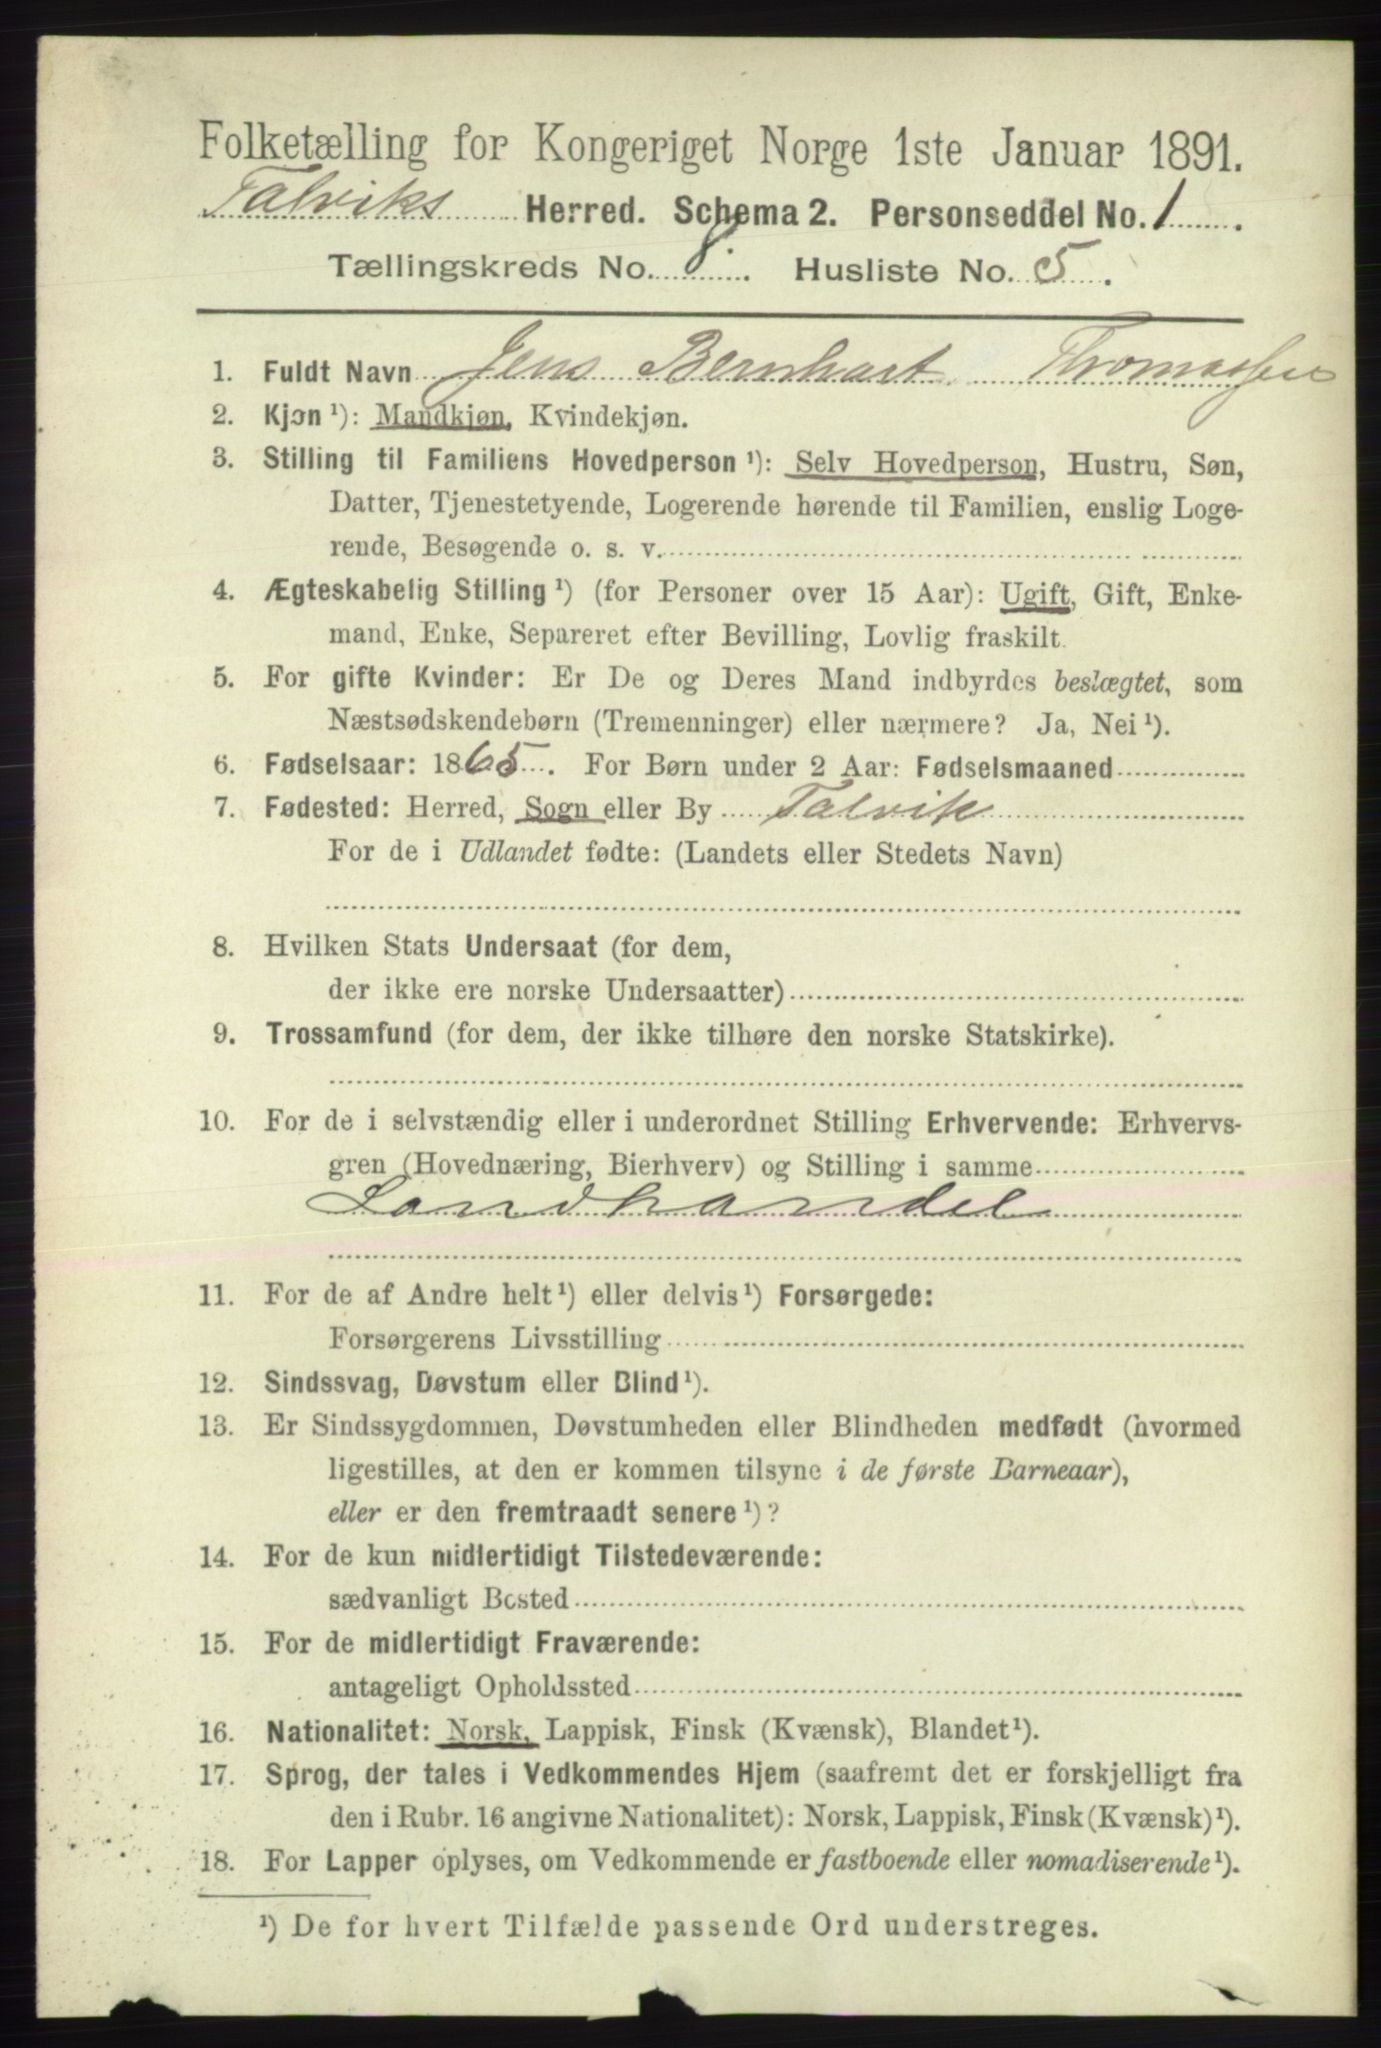 Folketælling for Kongeriget Norge 1ste Januar 1891.
Talviks Herred. Schema 2. Personseddel No. 1.
Tællingskreds No. 8. Husliste No. 5.
1. Fuldt Navn Jens Bernhart Thomassen
2. Kjøn¹): Mandkjøn, Kvindekjøn.
3. Stilling til Familiens Hovedperson¹): Selv Hovedperson, Hustru, Søn,
Datter, Tjenestetyende, Logerende hørende til Familien, enslig Loge-
rende, Besøgende o. s. v.
4. Ægteskabelig Stilling¹) (for Personer over 15 Aar): Ugift, Gift, Enke-
mand, Enke, Separeret efter Bevilling, Lovlig fraskilt.
5. For gifte Kvinder: Er De og Deres Mand indbyrdes beslægtet, som
Næstsødskendebørn (Tremenninger) eller nærmere? Ja, Nei¹).
6. Fødselsaar: 1865. For Børn under 2 Aar: Fødselsmaaned
7. Fødested: Herred, Sogn eller By Talvik
For de i Udlandet fødte: (Landets eller Stedets Navn)
8. Hvilken Stats Undersaat (for dem,
der ikke ere norske Undersaatter)
9. Trossamfund (for dem, der ikke tilhøre den norske Statskirke).
10. For de i selvstændig eller i underordnet Stilling Erhvervende: Erhvervs-
gren (Hovednæring, Bierhverv) og Stilling i samme
Landhandel
11. For de af Andre helt¹) eller delvis¹) Forsørgede:
Forsørgerens Livsstilling
12. Sindssvag, Døvstum eller Blind¹).
13. Er Sindssygdommen, Døvstumheden eller Blindheden medfødt (hvormed
ligestilles, at den er kommen tilsyne i de første Barneaar),
eller er den fremtraadt senere¹)?
14. For de kun midlertidigt Tilstedeværende:
sædvanligt Bosted
15. For de midlertidigt Fraværende:
antageligt Opholdssted
16. Nationalitet: Norsk, Lappisk, Finsk (Kvænsk), Blandet¹).
17. Sprog, der tales i Vedkommendes Hjem (saafremt det er forskjelligt fra
den i Rubr. 16 angivne Nationalitet): Norsk, Lappisk, Finsk (Kvænsk)¹).
18. For Lapper oplyses, om Vedkommende er fastboende eller nomadiserende¹).
¹) De for hvert Tilfælde passende Ord understreges.